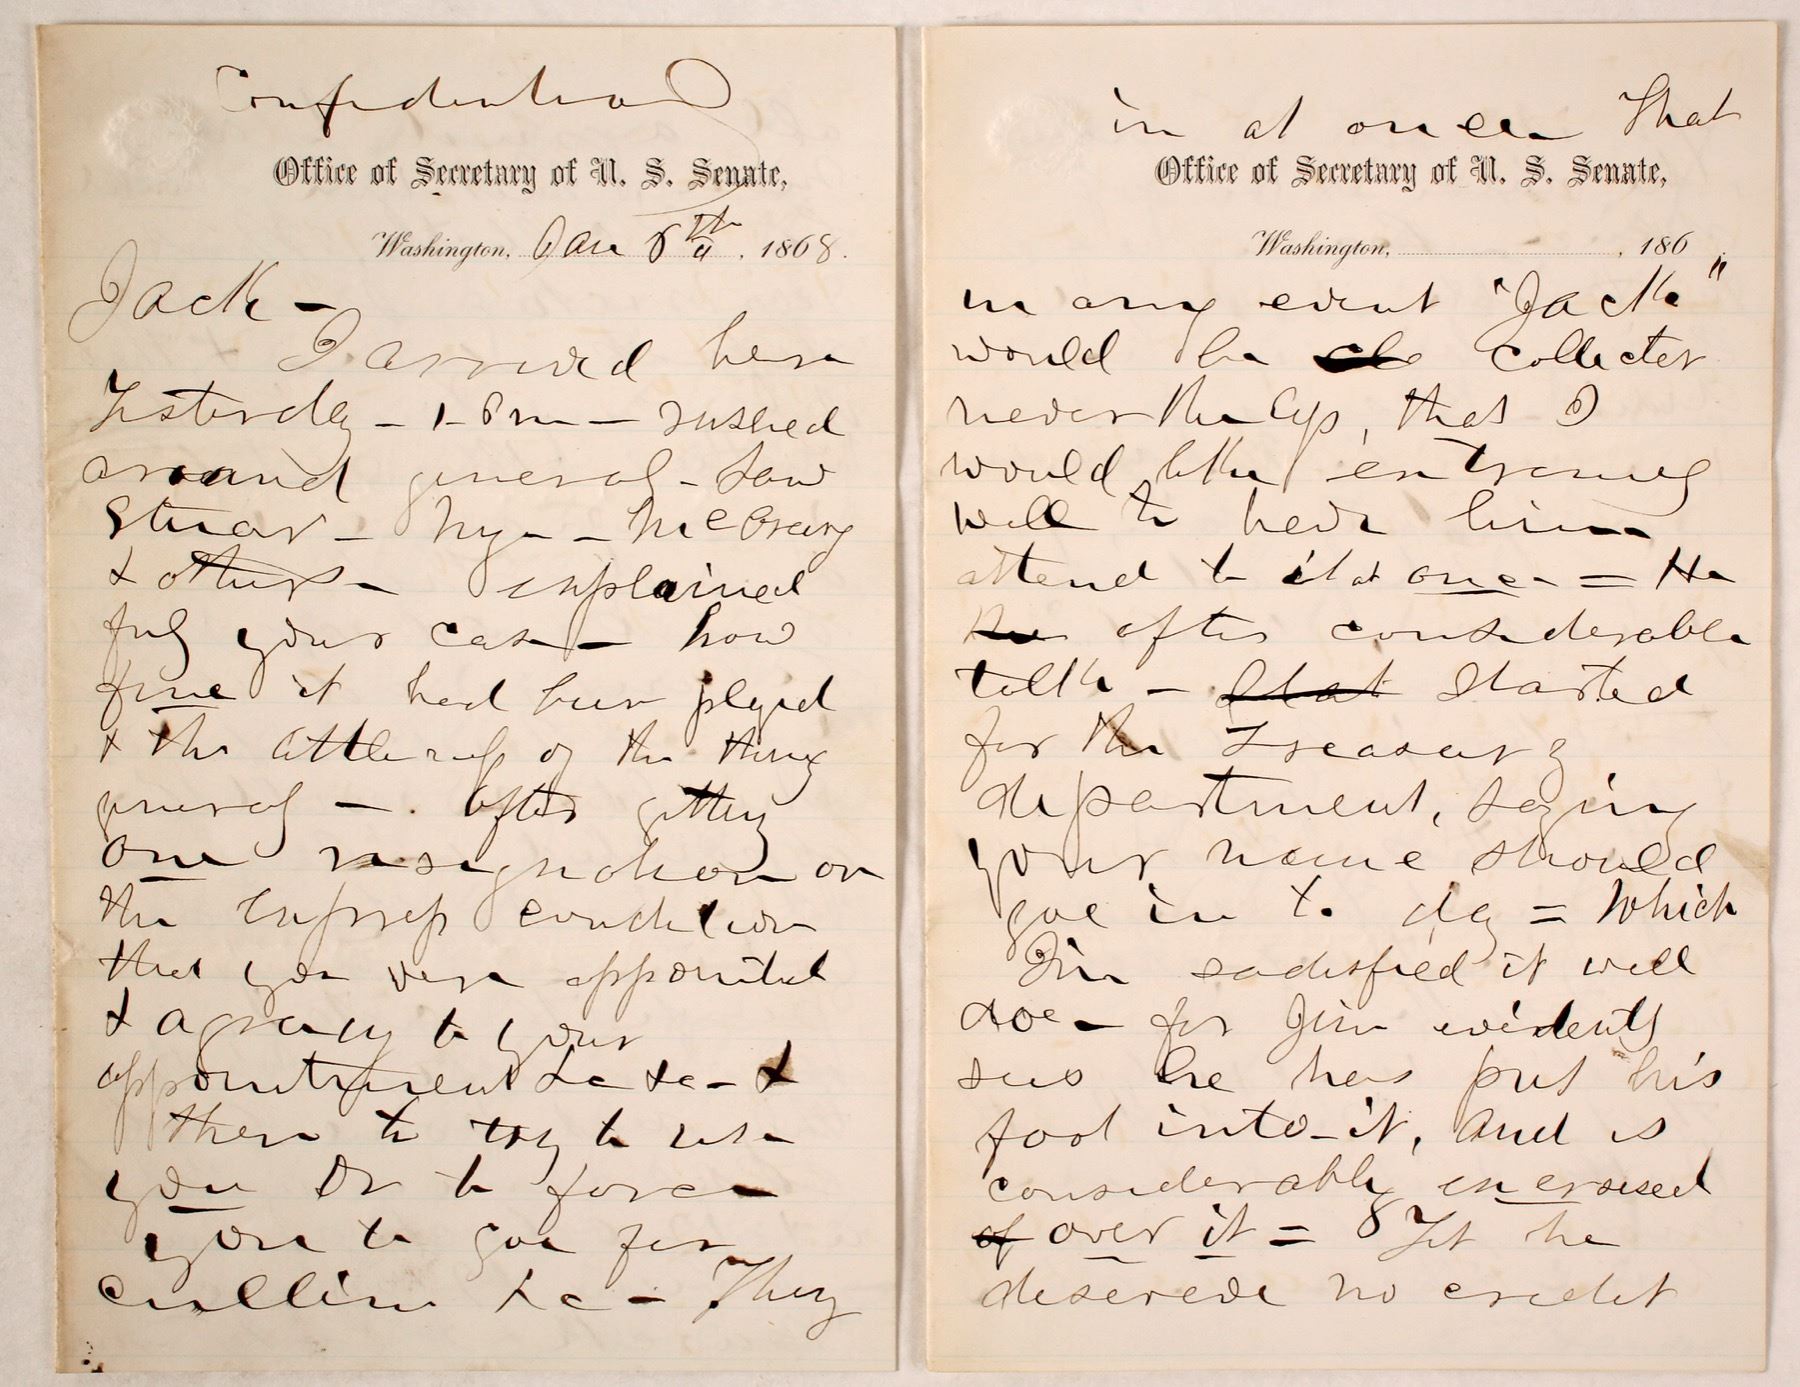 Confidential
Office of Secretary of U. S. Senate,
Washington, Jan 8th, 1868.
Jack –
I arrived here
Yesterday – 1 – Pm – rushed
around general – Saw
Stuar – Nye – McCreary
& others – explained
fuly your case – how
fine it had been played
& the of the thing
general – . After getting
one resignation on
the express condition
that you were appointed
& agreeing to your
appointment &c &c – &
then to try to use
you or to force
you to goe for
&c – They
in at once That
Office of Secretary of U. S. Senate,
Washington, , 186 .
in any event "Jack"
would be Collecter
never the less, that I
would like extremely
well to have him
attend to it at once = He
after considerable
talk – Stat Started
for the Treasury
department, saying
your name should
goe in to day = Which
I'm sadisfied it will
doe – for Jim evidently
sees he has put his
foot into it, and is
considerably exercised
of over it = Yet he
deserves no credit